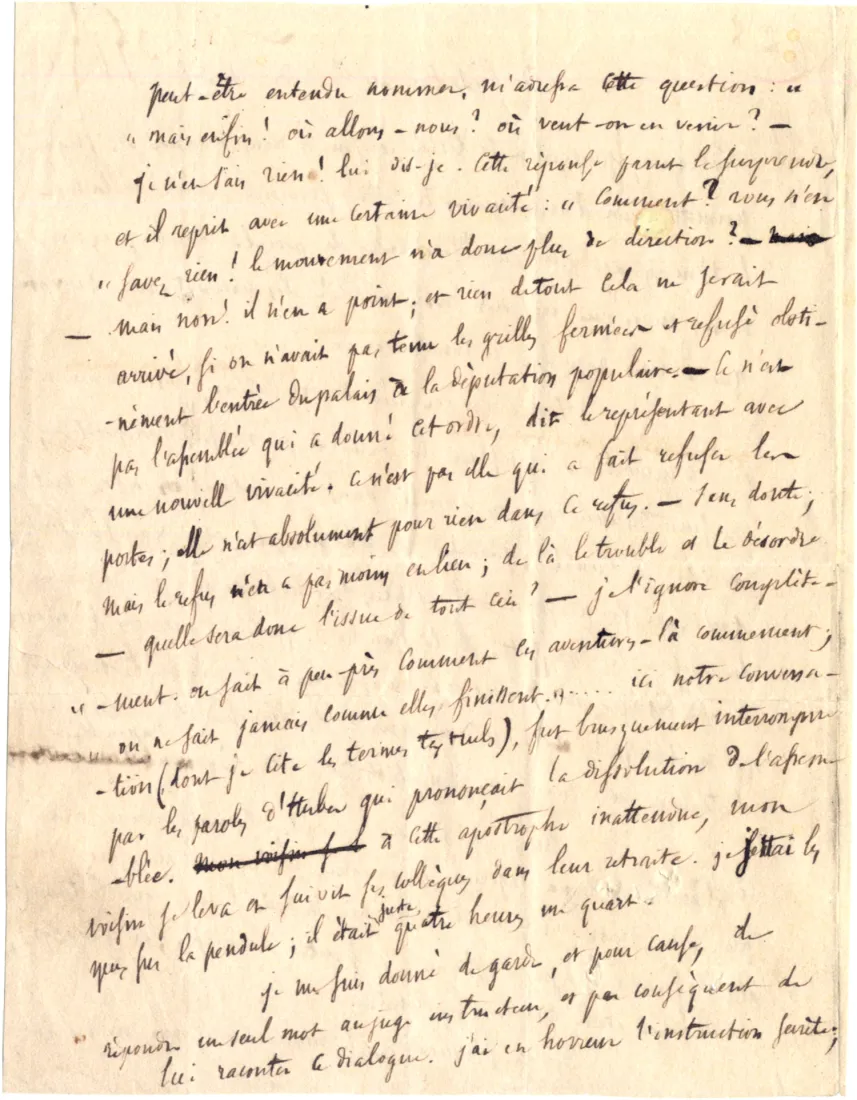 peut-être entendu nommer, m'adressa cette question : «
« mais enfin ! où allons-nous ? où veut-on en venir ? —
je n'en sais rien ! lui dis-je. Cette réponse parut le surprendre,
et il reprit avec une certaine vivacité : « Comment ? vous n'en
« savez rien ! le mouvement n'a donc plus de direction ? —
— mais non ! il n'en a point ; et rien de tout cela ne serait
arrivé, si on n'avait pas tenu les grilles fermées et refusé obsti-
-nément l'entrée du palais à la députation populaire. — Ce n'est
pas l'assemblée qui a donné cet ordre, dit le représentant avec
une nouvelle vivacité. ce n'est pas elle qui a fait refuser les
portes ; elle n'est absolument pour rien dans ce refus. — Sans doute ;
mais le refus n'en a pas moins eu lieu ; de là le trouble et le désordre
— quelle sera donc l'issue de tout ceci ? — je l'ignore complète-
« -ment. on sait à peu-près comment ces aventures-là commencent ;
on ne sait jamais comme elles finissent. » ..... ici notre conversa-
-tion (dont je cite les termes textuels), fut brusquement interrompue
par les paroles d'Huber qui prononçait la dissolution de l'assem-
-blée. mon voisin à cette apostrophe inattendue, mon
voisin se leva et suivit ses collègues dans leur retraite. je jettai les
yeux sur la pendule ; il était juste quatre heures un quart.
je me suis donné de garde, et pour cause, de
répondre un seul mot au juge instructeur, et par conséquent de
lui raconter ce dialogue. j'ai en horreur l'instruction secrète ;